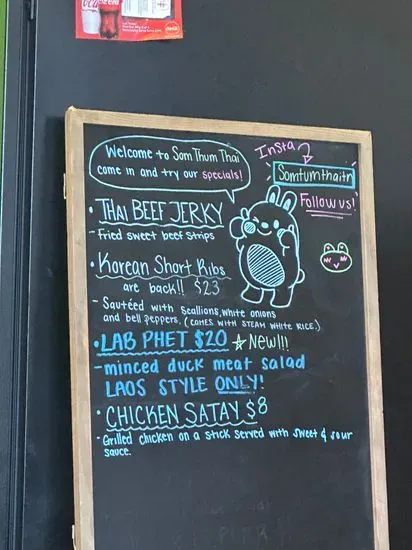 Welcome to Som Thum Thai
come in and try our specials!
Insta
Somtumthaitn
Follow us!
• THAI BEEF JERKY
- Fried sweet beef strips
• Korean Short Ribs
are back!! $23
- Sautéed with scallions, white onions
and bell peppers. (COMES WITH STEAM WHITE RICE.)
• LAB PHET $20 ☆ New!!!
- minced duck meat salad
LAOS STYLE ONLY!
• CHICKEN SATAY $8
- Grilled chicken on a stick served with sweet & sour
sauce.